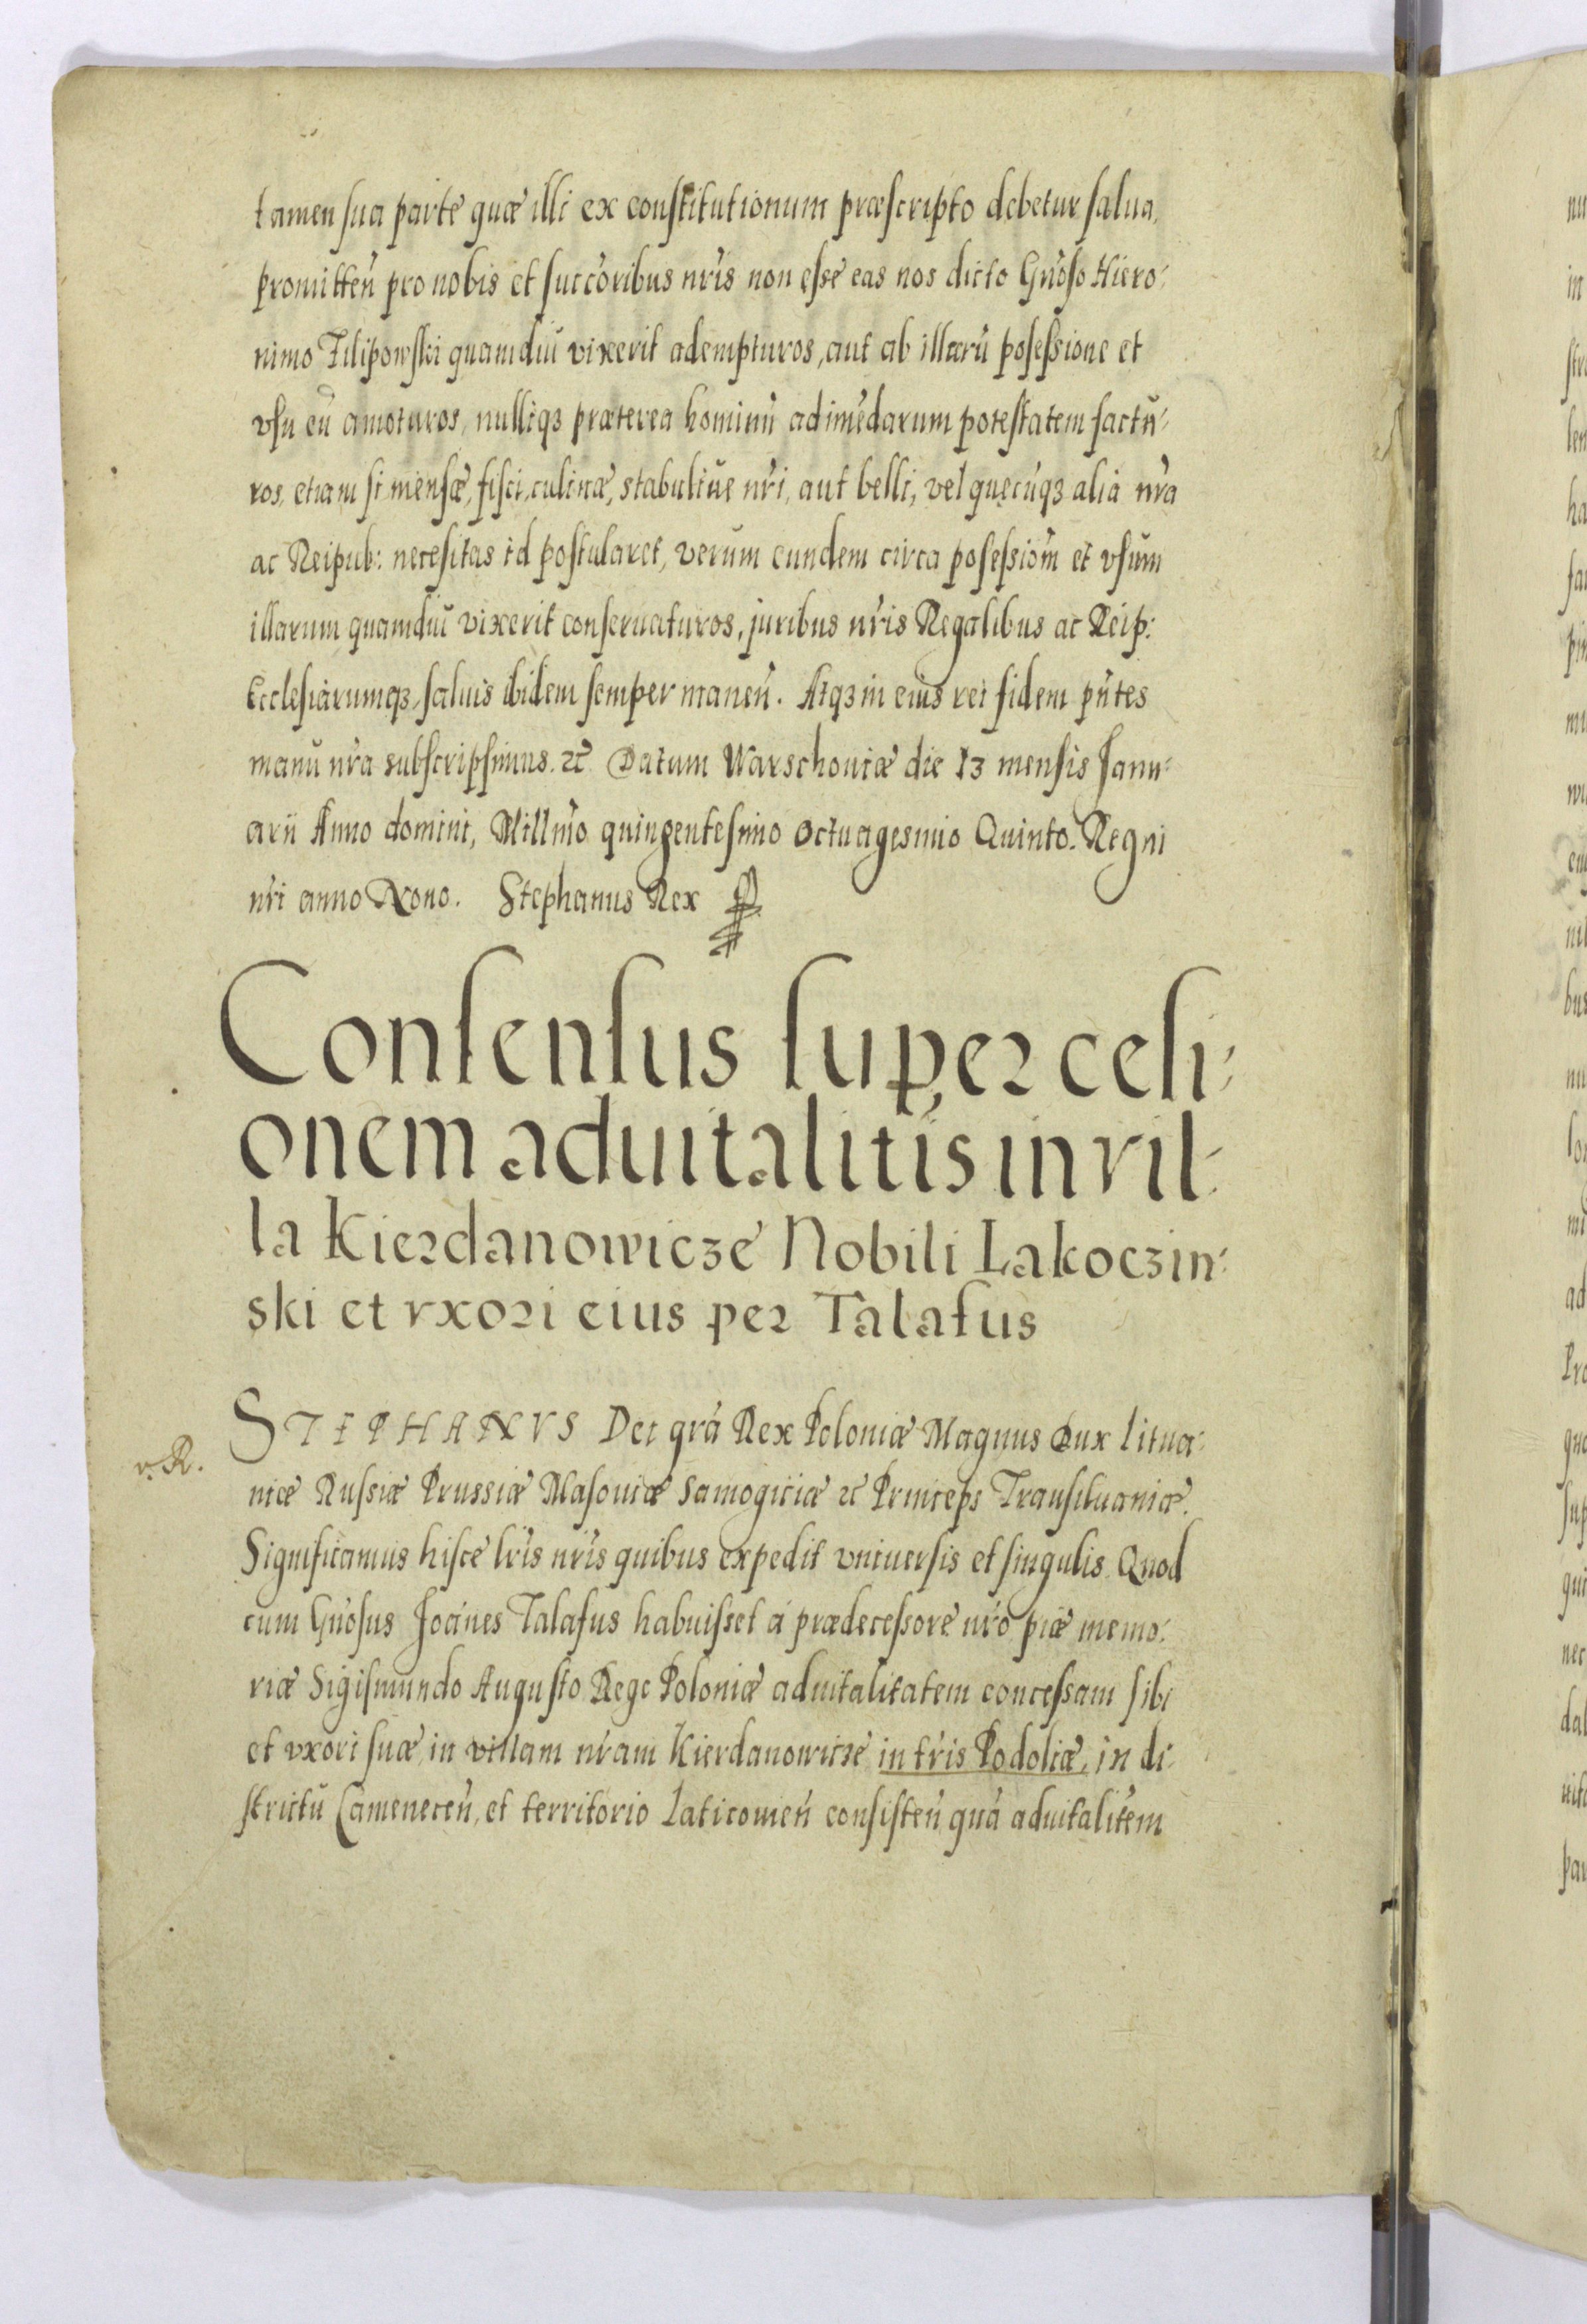 tamen sua parte quæ illi ex constitutionum præscripto debetur salua,
promitteñ pro nobis et succoribus nris non esse eas nos dicto Gnoso Hiero-
nimo Filipowski quamdiu vixerit adempturos, aut ab illarū posessione et
vsu eū amoturos, nulliqꝫ præterea hominū adimēdarum potestatem factu-
ros, etiam si mensæ, fisci, culinæ, stabuliue nri, aut belli, vel quęcūqꝫ alia nra
ac Reipub: necesitas id postularet, verum eundem circa posessiom et vsum
illarum quamdiu vixerit conseruaturos, juribus nris Regalibus ac Reip:
Ecclesiarumqꝫ saluis ibidem semper maneñ. Atqꝫ in eius rei fidem pñtes
manu nra subscripsimus. ꝛc Datum Warschouiæ die 13 mensis Janu-
arii Anno domini, Millmo quingentesimo Octuagesimo Quinto. Regni
nri anno Nono. Stephanus Rex
Consensus super cesi-
onem aduitalitis in vil-
la Kierdanowicze Nobili Lakoczin-
ski et vxori eius per Talafus
STEPHANVS Dei gra Rex Poloniæ Magnus Dux Litua-
r. R.
niæ Russiæ Prussiæ Masouiæ Samogitiæ ꝛc Princeps Transiluaniæ.
Significamus hisce lris nris quibus expedit vniuersis et singulis. Quod
cum Gnosus Joānes Talafus habuisset á prædecessore nro piæ memo-
riæ Sigismundo Augusto Rege Poloniæ aduitalitatem concessam sibi
et vxori suæ in villam nram Kierdanowicze in tris Podoliæ, in di-
strictu Cameneceñ, et territorio Laticouieñ consisteñ quā aduitalitem